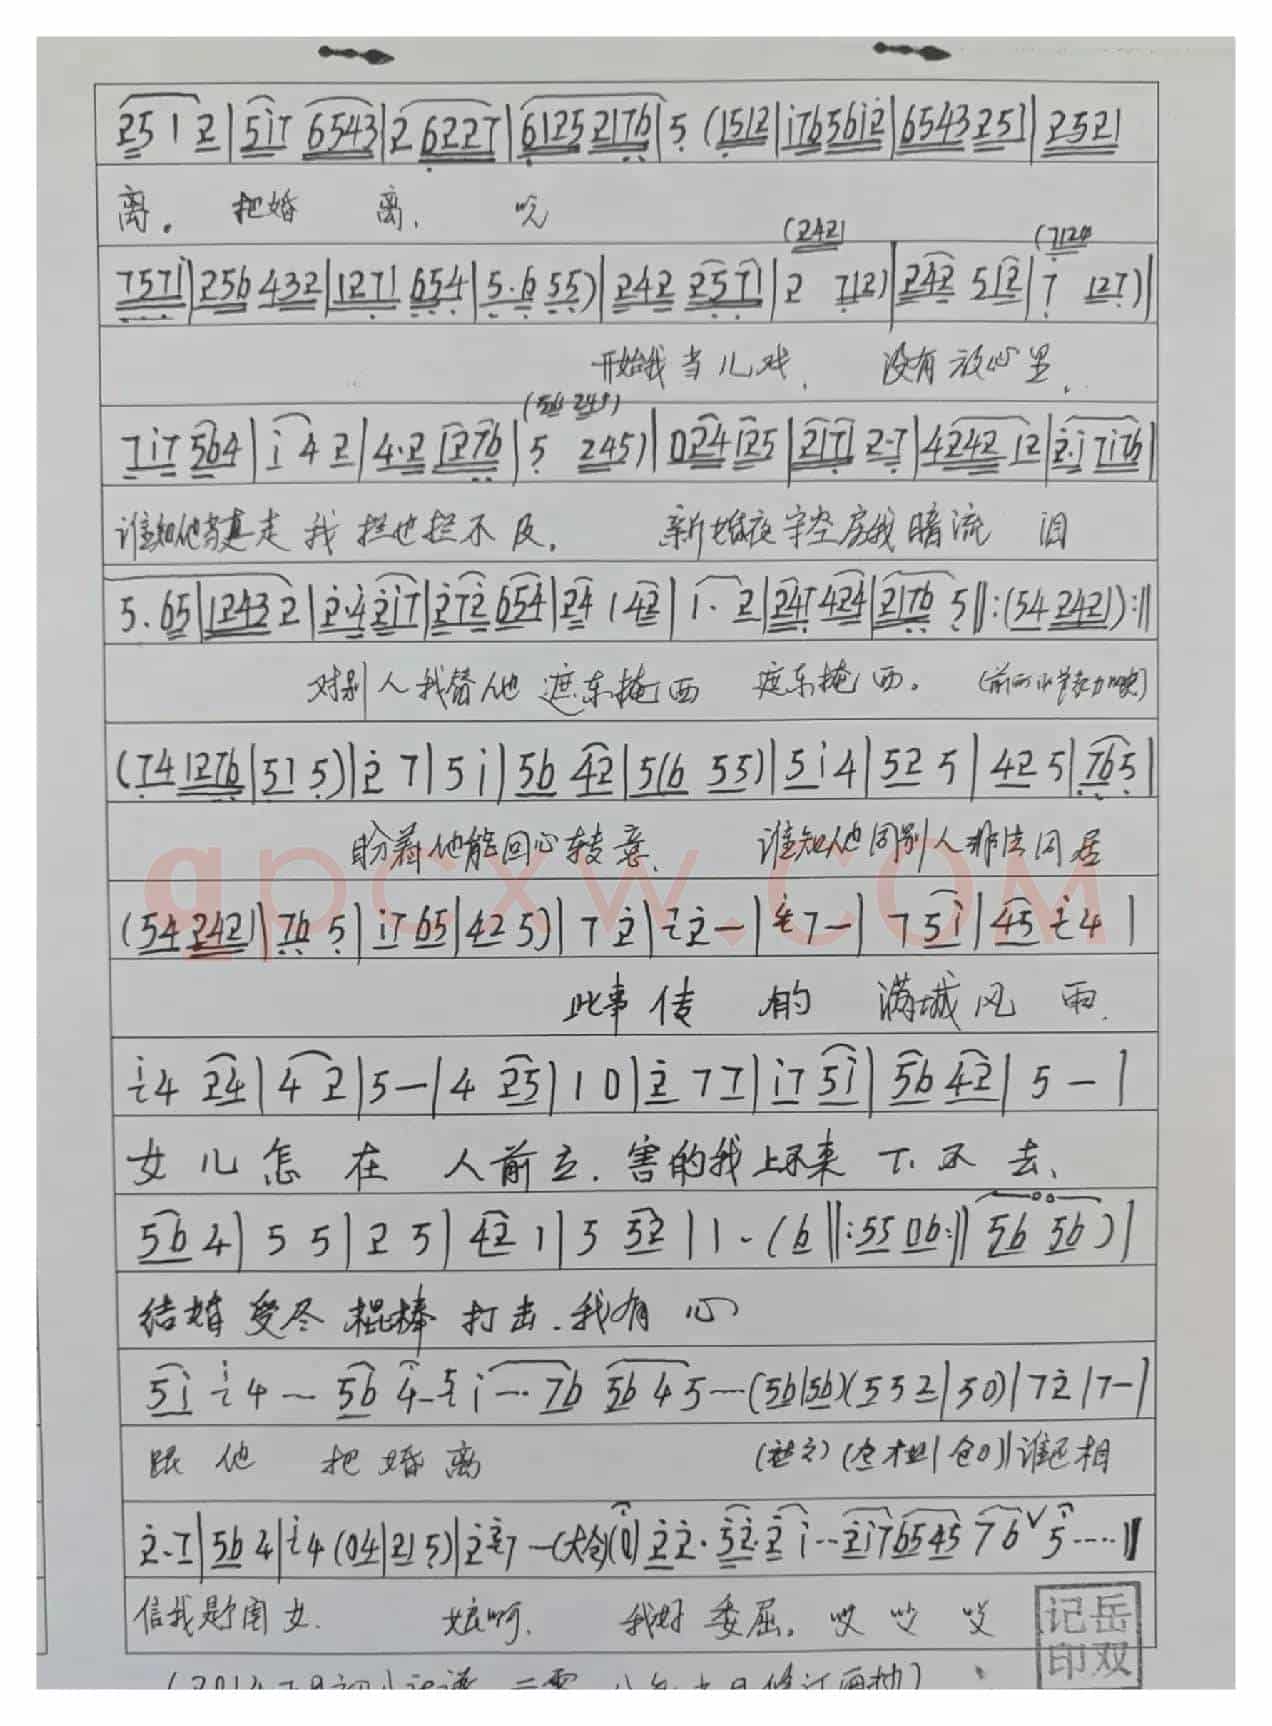 2 5 1 2 | 5 i 7 6543 | 2 6227 | 6125 2176 | 5 (1512 | i76 56i2 | 6543 251 | 2521
离。 把婚 离,
(2421 (712
7571 | 256 432 | 1271 654 | 5·6 55) | 242 2571 | 2 712) | 242 512 | 7 127) |
开始我当儿戏, 没有放心里,
7i7 564 | i 4 2 | 4·2 1276 | 5 245) | 024 125 | 2171 2·7 | 4242 12 | 2·i 7i76 |
谁知他当真走我拦也拦不及, 新婚夜守空房我暗流 泪
5.65 | 1243 2 | 2·4 2i7 | 272 654 | 24 1 42 | 1· 2 | 247 424 | 2176 5 ||:(54 2421):||
对别人我替他遮东掩西 遮东掩西。
(74 1276 | 51 5) | 2 7 | 5 i | 56 42 | 5(6 55) | 5 i 4 | 52 5 | 42 5 | 76 5 |
盼着他能回心转意, 谁知他同别人非法同居
qpcxw.COM
(54 2421 | 76 5 | i7 65 | 42 5) | 7 2 | i 2 — | 7 — | 7 5i | 45 i 4 |
此事传的满城风雨.
i 4 24 | 4 2 | 5 — | 4 25 | 1 0 | 2 7 7 | i7 5i | 56 42 | 5 — |
女儿怎在人前立. 害的我上不来下不去、
56 4 | 5 5 | 2 5 | 42 1 | 5 52 | 1 - (6 ||: 55 06 :|| 56 56) |
结婚受尽棍棒打击. 我有心
5i i 4 — 56 4 - 5 i ··· 76 56 4 5 ··· (56 | 56) (55 2 | 50) | 7 2 | 7 — |
跟他把婚离 谁还相
2·7 | 56 4 | i 4 (04 | 21 5) | 2 7 — (大仓) (0) 2 2· 52· 2 i ·· 2i76545 76 ∨ 5 ···· ||
信我是个闺女. 娘啊. 我好委屈。哎 哎
岳双记印